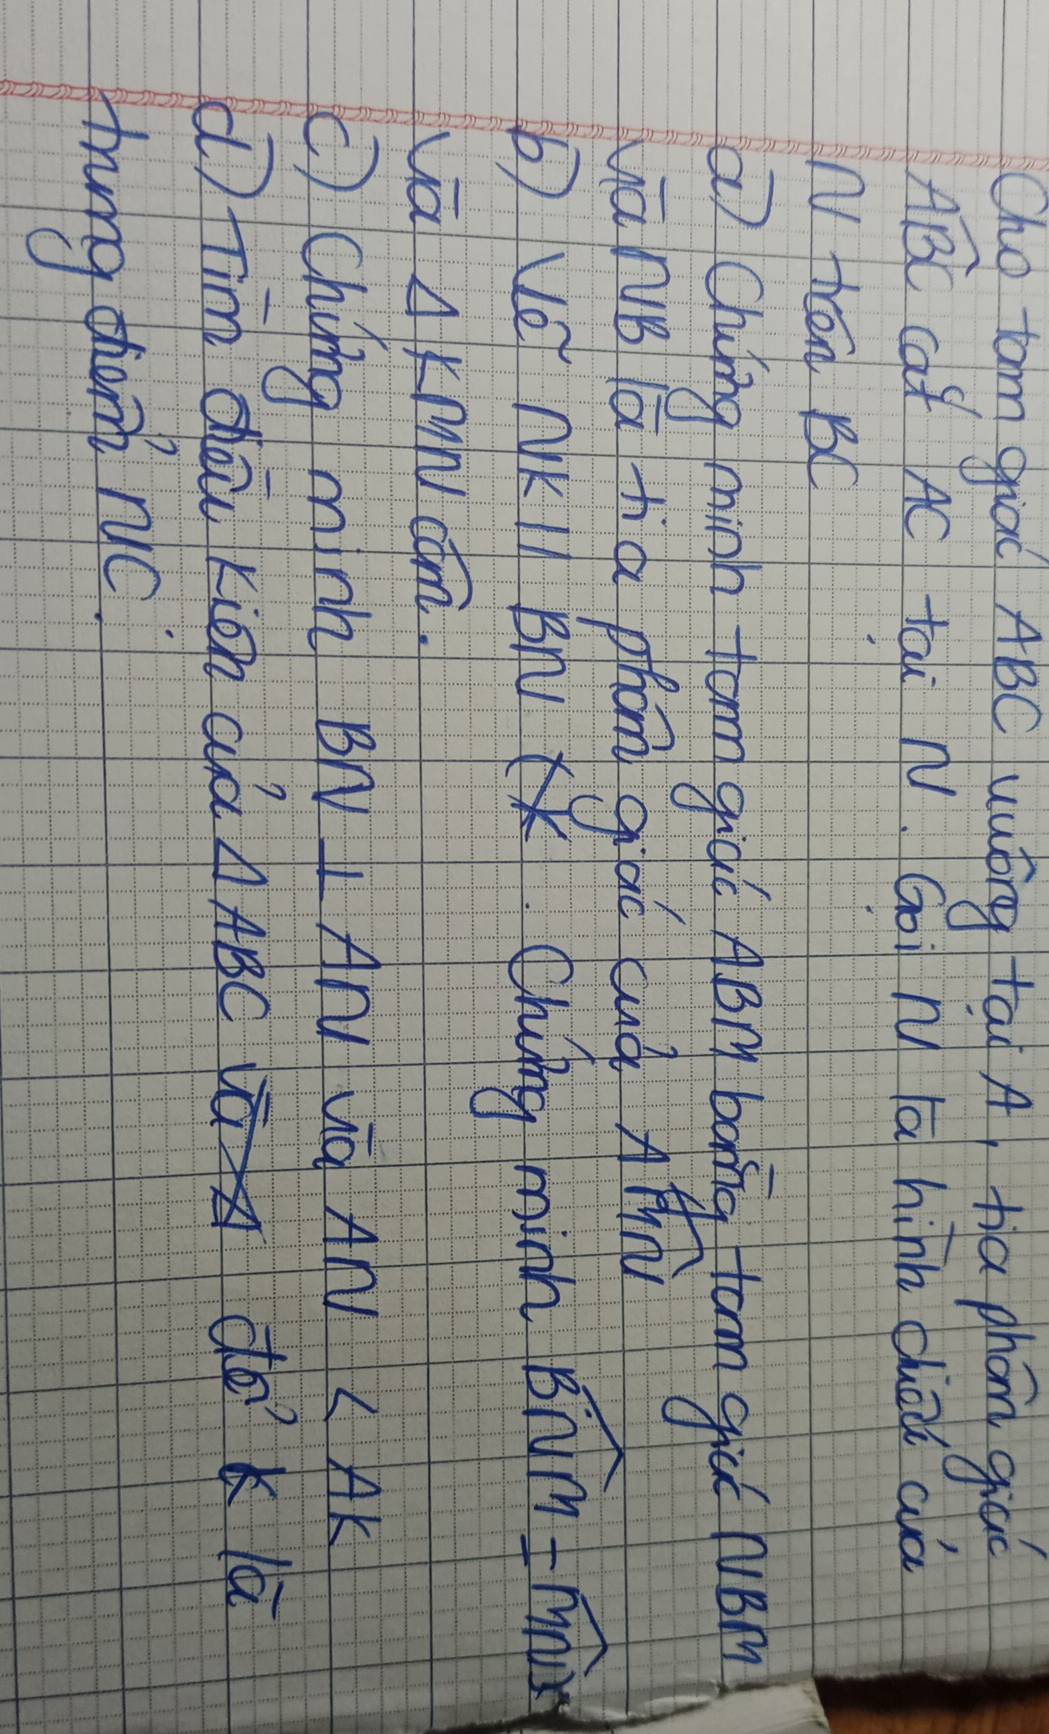 Cho tam giác ABC vuông tại A, tia phân giác
ABC cắt AC tại N. Gọi N là hình chiếu của
N trên BC
a) Chứng minh tam giác ABM bằng tam giác NBM
và NB là tia phân giác của AMN
b) Vẽ NK // BN ( . Chứng minh BNM = MNK
và Δ KMN cân.
c) Chứng minh BN ⊥ AN và AN < AK
d) Tìm điều kiện của Δ ABC để K là
trung điểm NC.